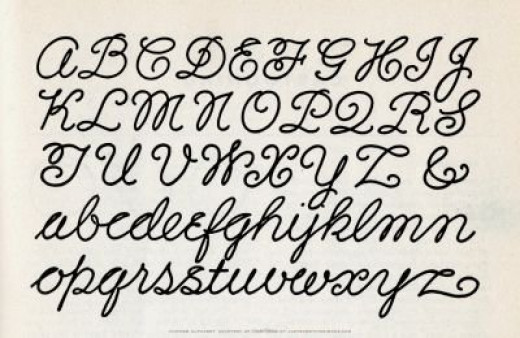 ABCDEFGHIJ
KLMNOPQRS
TUVWXYZ &
abcdeefghijklmn
opqrsstuvwxyz